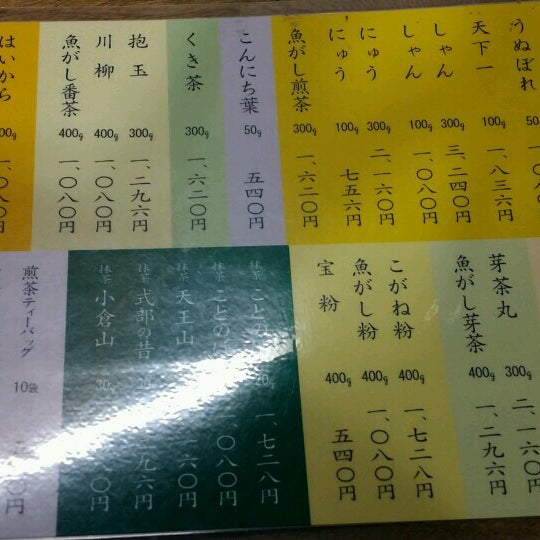 うぬぼれ 50
天下一 100g 一、八三六円
しゃん 300g 三、二四〇円
しゃん 100g 一、〇八〇円
にゅう 300g 二、一六〇円
にゅう 100g 七五六円
魚がし煎茶 300g 一、六二〇円
こんにち葉 50g 五四〇円
くき茶 300g 一、六二〇円
抱玉 300g 一、二九六円
川柳 400g 一、〇八〇円
魚がし番茶 400g 一、〇八〇円
はいから 00g 一、〇八〇円
芽茶丸 300g 二、一六〇円
魚がし芽茶 400g 一、二九六円
こがね粉 400g 一、七二八円
魚がし粉 400g 一、〇八〇円
宝粉 400g 五四〇円
抹茶 ことの 一、七二八円
抹茶 ことの 一、〇八〇円
抹茶 天王山 一、六二〇円
抹茶 式部の昔 一、二九六円
抹茶 小倉山 30g 一、〇八〇円
煎茶ティーバッグ 10袋 円